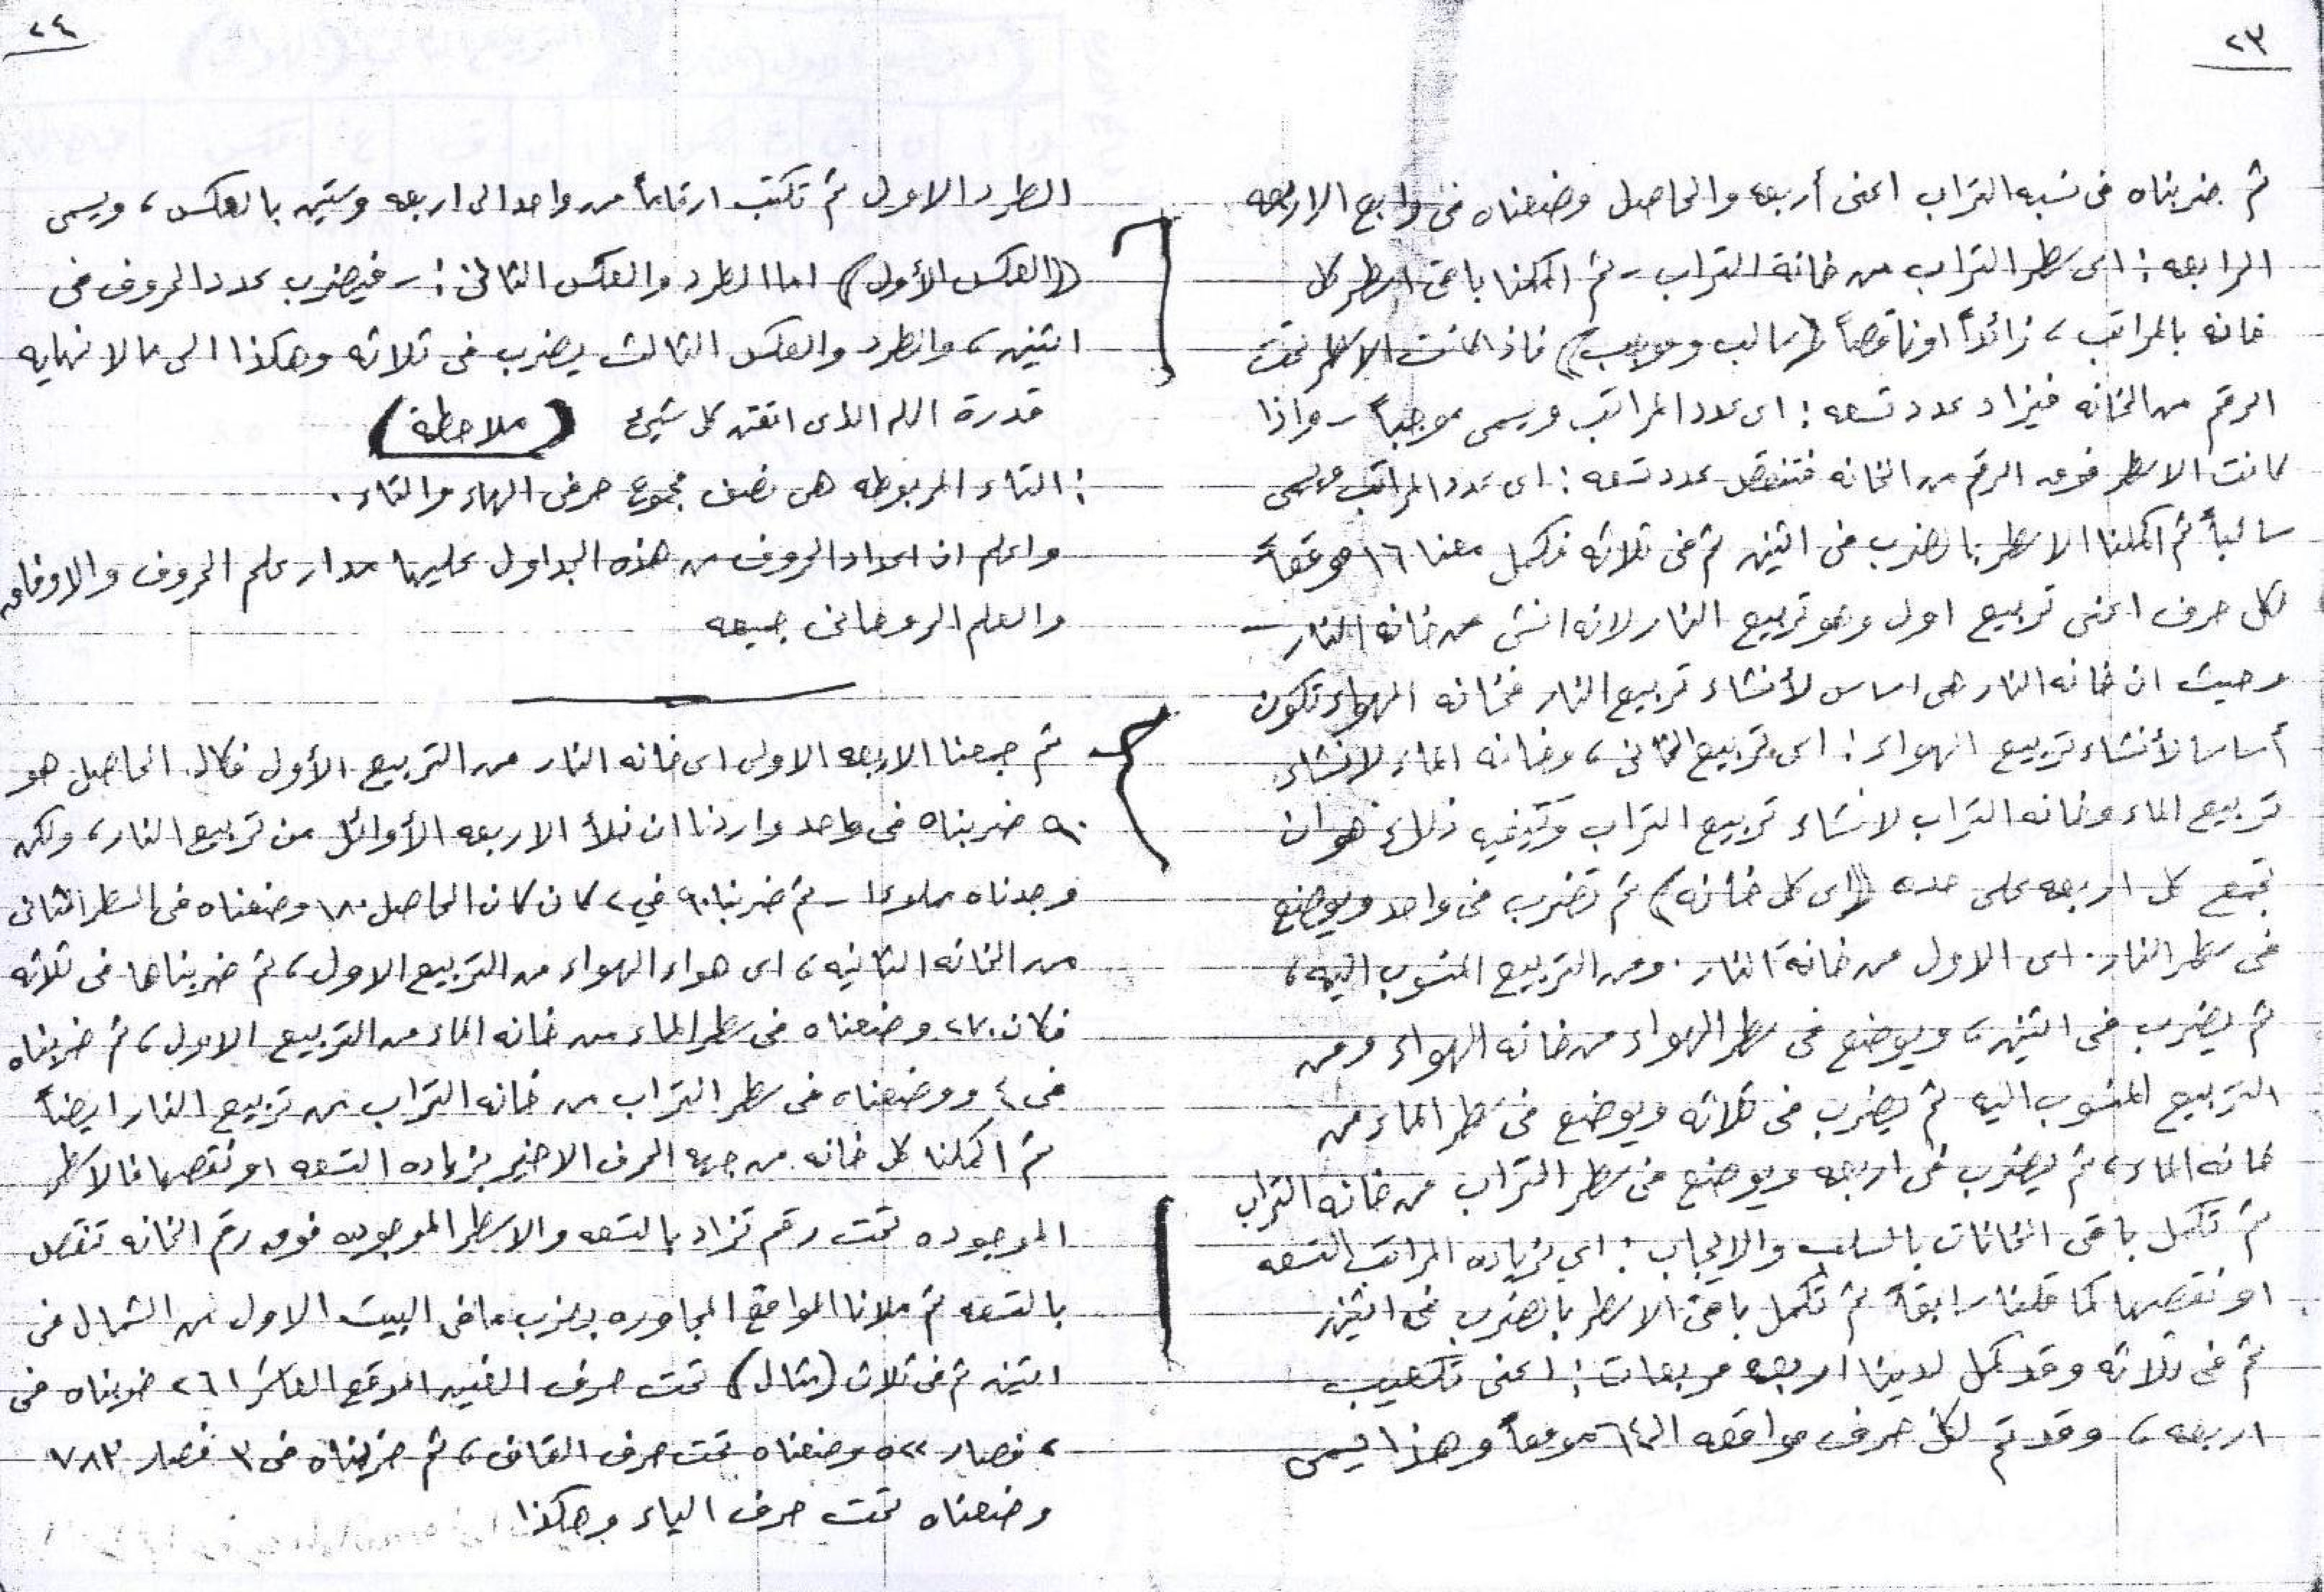 ٢٣
ثم ضربناه فى نسبه التراب اعنى أربعه والحاصل وضعناه فى رابع الاربعه
الرابعه : اى سطر التراب من خانة التراب - ثم اكملنا باقى اسطر كل
خانه بالمراتب ، زائداً او ناقصاً (سالب وموجب) فاذا كانت الاسطر تحت
الرقم من الخانه فيزاد عدد تسعه : اى عدد المراتب ويسمى موجباً - واذا
كانت الاسطر فوق الرقم من الخانه فتنقص عدد تسعه : اى عدد المراتب ويسمى
سالباً ثم اكملنا الاسطر بالضرب فى اثنين ثم فى ثلاثه فكمل معنا ١٦ موقعاً
لكل حرف اعنى تربيع اول وهو تربيع النار لانه انشئ من خانه النار -
وحيث ان خانه النار هى اساس لأنشاء تربيع النار فخانه الهواء تكون
أساسا لأنشاء تربيع الهواء : اى تربيع الثانى ، وخانه الماء لانشاء
تربيع الماء وخانه التراب لانشاء تربيع التراب وكيفيه ذلك هو ان
تجمع كل اربعه على حده (اى كل خانه) ثم تضرب فى واحد ويوضع
فى سطر النار . اى الاول من خانة النار . ومن التربيع المنسوب اليه ،
ثم يضرب فى اثنين ، ويوضع فى سطر الهواء من خانه الهواء ومن
التربيع المنسوب اليه ثم يضرب فى ثلاثه ويوضع فى سطر الماء من
خانه الماء ، ثم يضرب فى اربعه ويوضع فى سطر التراب من خانه التراب
ثم تكمل باقى الخانات بالسلب والايجاب : اي بزياده المراتب التسعه
او نقصها كما قلنا سابقاً ثم تكمل باقى الاسطر بالضرب فى اثنين
ثم فى ثلاثه وقد كمل لدينا اربعه مربعات : اعنى تكعيب
اربعه ، وقد تم لكل حرف مواقعه الـ ٦٤ موقعاً وهذا يسمى
٢٤
الطرد الاول ثم تكتب ارقاماً من واحد الى اربعه وستين بالعكس ، ويسمى
((العكس الأول)) اما الطرد والعكس الثانى :- فيضرب عدد الحروف فى
اثنين ، والطرد والعكس الثالث يضرب فى ثلاثه وهكذا الى مالا نهايه
قدرة الله الذى اتقن كل شيئ (ملاحظه)
: التاء المربوطه هى نصف مجموع حرفى الهاء والتاء .
واعلم ان اعداد الحروف من هذه الجداول عليها مدار علم الحروف والاوفاق
والعلم الروحانى جميعه
ثم جمعنا الاربعه الاولى اى خانه النار من التربيع الأول فكان الحاصل هو
٩٠ ضربناه فى واحد واردنا ان نملأ الاربعه الأوائل من تربيع النار ، ولكن
وجدناه مملوءا - ثم ضربنا ٩٠ في ٢ كان كان الحاصل ١٨٠ وضعناه فى السطر الثانى
من الخانه الثانيه ، اى هواء الهواء من التربيع الاول ، ثم ضربناها فى ثلاثه
فكان ٢٧٠ وضعناه فى سطر الماء من خانه الماء من التربيع الاول ، ثم ضربناه
فى ٤ ووضعناه فى سطر التراب من خانه التراب من تربيع النار ايضاً
ثم اكملنا كل خانه من جهه الحرف الاخير بزياده التسعه او نقصها فالاسطر
الموجوده تحت رقم تزاد بالتسعه والاسطر الموجوده فوق رقم الخانه تنقص
بالتسعه ثم ملانا المواقع المجاوره بضرب مافى البيت الاول من الشمال فى
اثنين ثم فى ثلاث (مثال) تحت حرف الغين الموقع العاشر ٢٦١ ضربناه فى
٢ فصار ٥٢٢ وضعناه تحت حرف القاف ، ثم ضربناه فى ٣ فصار ٧٨٣
وضعناه تحت حرف الياء وهكذا